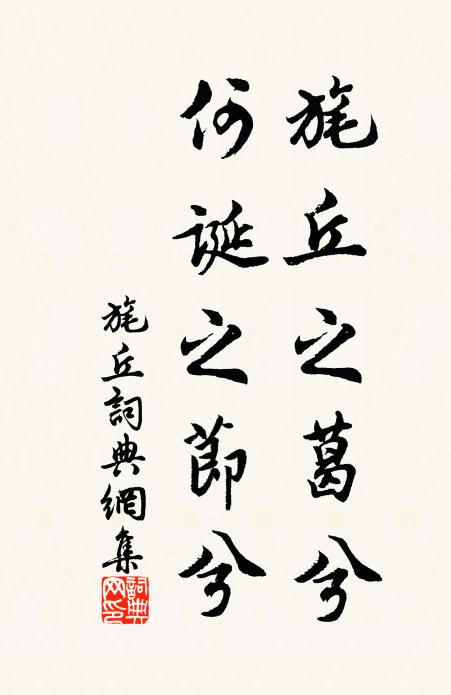 旄丘之葛兮
何誕之節兮
旄丘詞典網集
詞典網印